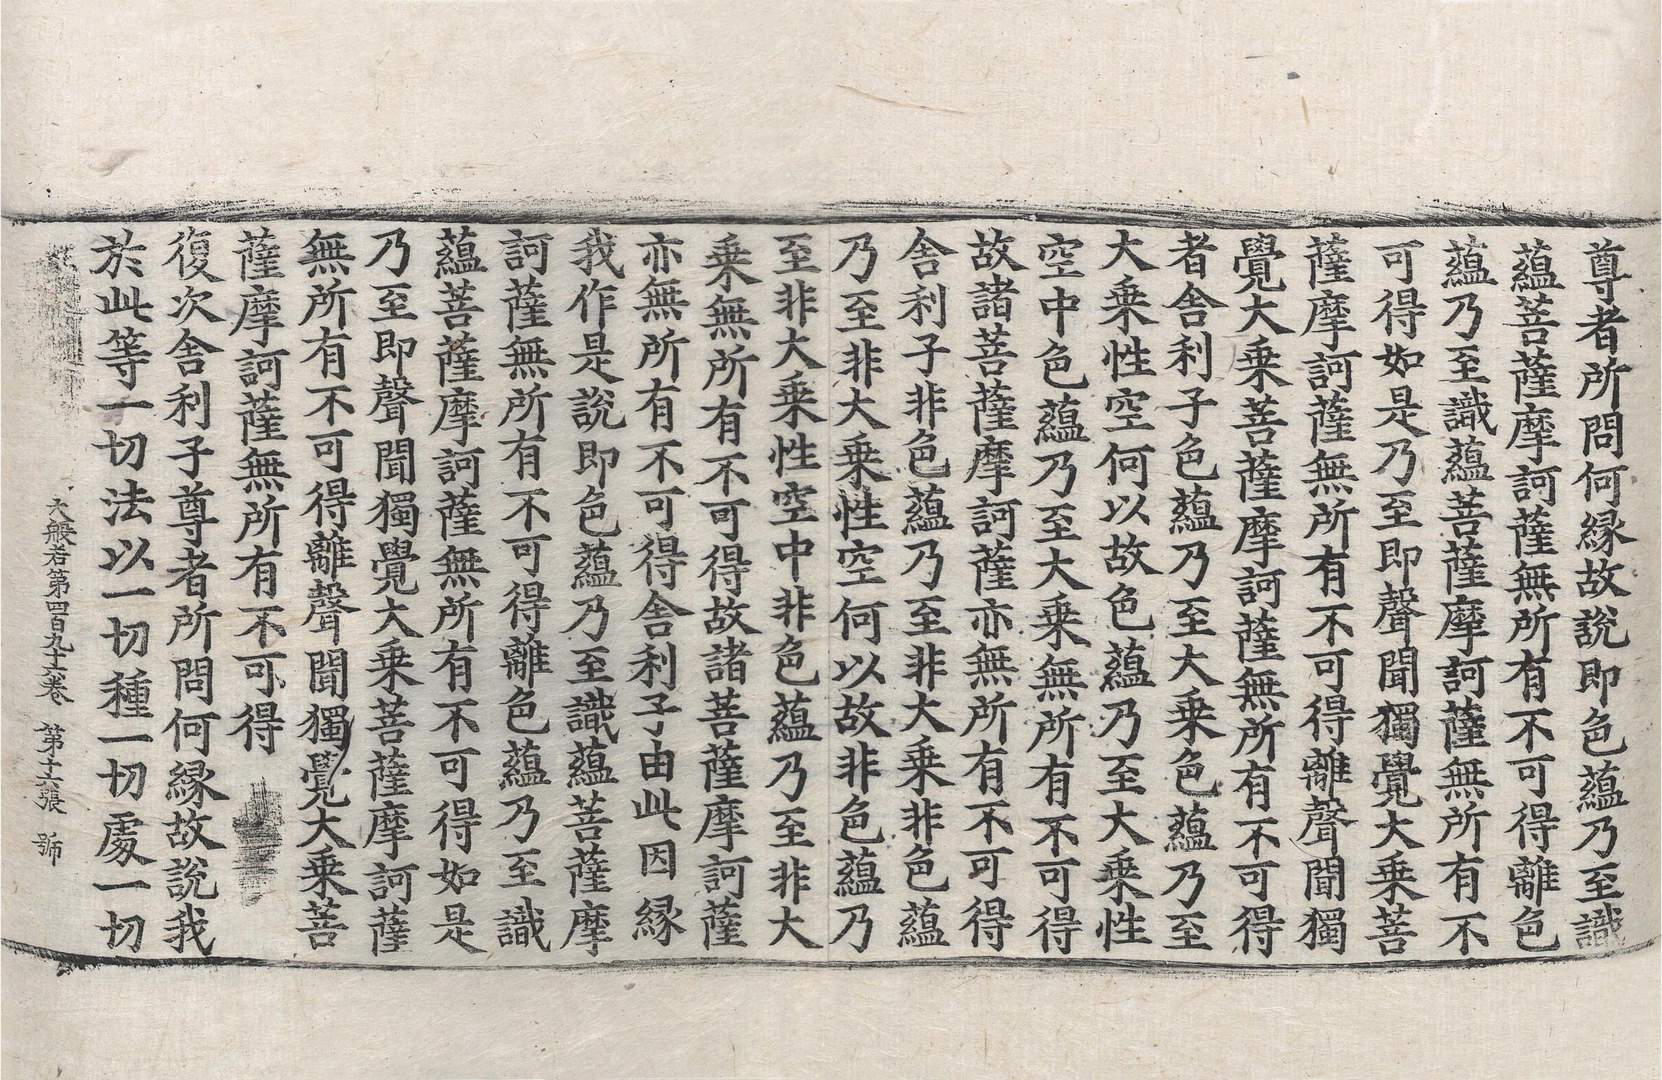 尊者所問何緣故說即色蘊乃至識
蘊菩薩摩訶薩無所有不可得離色
蘊乃至識蘊菩薩摩訶薩無所有不
可得如是乃至即聲聞獨覺大乗菩
薩摩訶薩無所有不可得離聲聞獨
覺大乗菩薩摩訶薩無所有不可得
者舎利子色蘊乃至大乗色蘊乃至
大乗性空何以故色蘊乃至大乗性
空中色蘊乃至大乗無所有不可得
故諸菩薩摩訶薩亦無所有不可得
舎利子非色蘊乃至非大乗非色蘊
乃至非大乗性空何以故非色蘊乃
至非大乗性空中非色蘊乃至非大
乗無所有不可得故諸菩薩摩訶薩
亦無所有不可得舎利子由此因緣
我作是說即色蘊乃至識蘊菩薩摩
訶薩無所有不可得離色蘊乃至識
蘊菩薩摩訶薩無所有不可得如是
乃至即聲聞獨覺大乗菩薩摩訶薩
無所有不可得離聲聞獨覺大乗菩
薩摩訶薩無所有不可得
復次舎利子尊者所問何緣故說我
於此等一切法以一切種一切處一切
大般若第四百九十六卷 第十六張 師